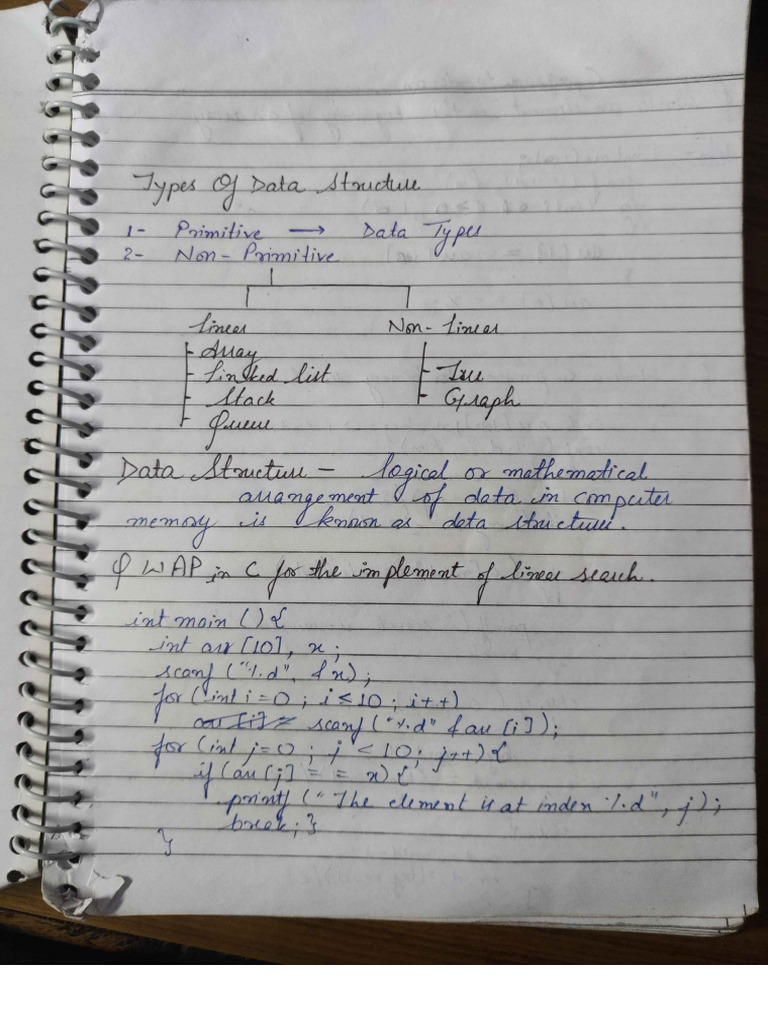 Types Of Data Structure
1- Primitive → Data Types
2- Non-Primitive
Linear Non-Linear
- Array
- Linked list - Tree
- Stack - Graph
- Queue
Data Structure - logical or mathematical
arrangement of data in computer
memory is known as data structure.
Q WAP in C for the implement of linear search.
int main () {
int arr [10], x ;
scanf ("%d", &x);
for (int i=0 ; i≤10 ; i++)
scanf ("%d" &arr [i]);
for (int j=0 ; j <10; j++) {
if (arr [j] = = x) {
printf ("The element is at index %d", j);
break; }
}